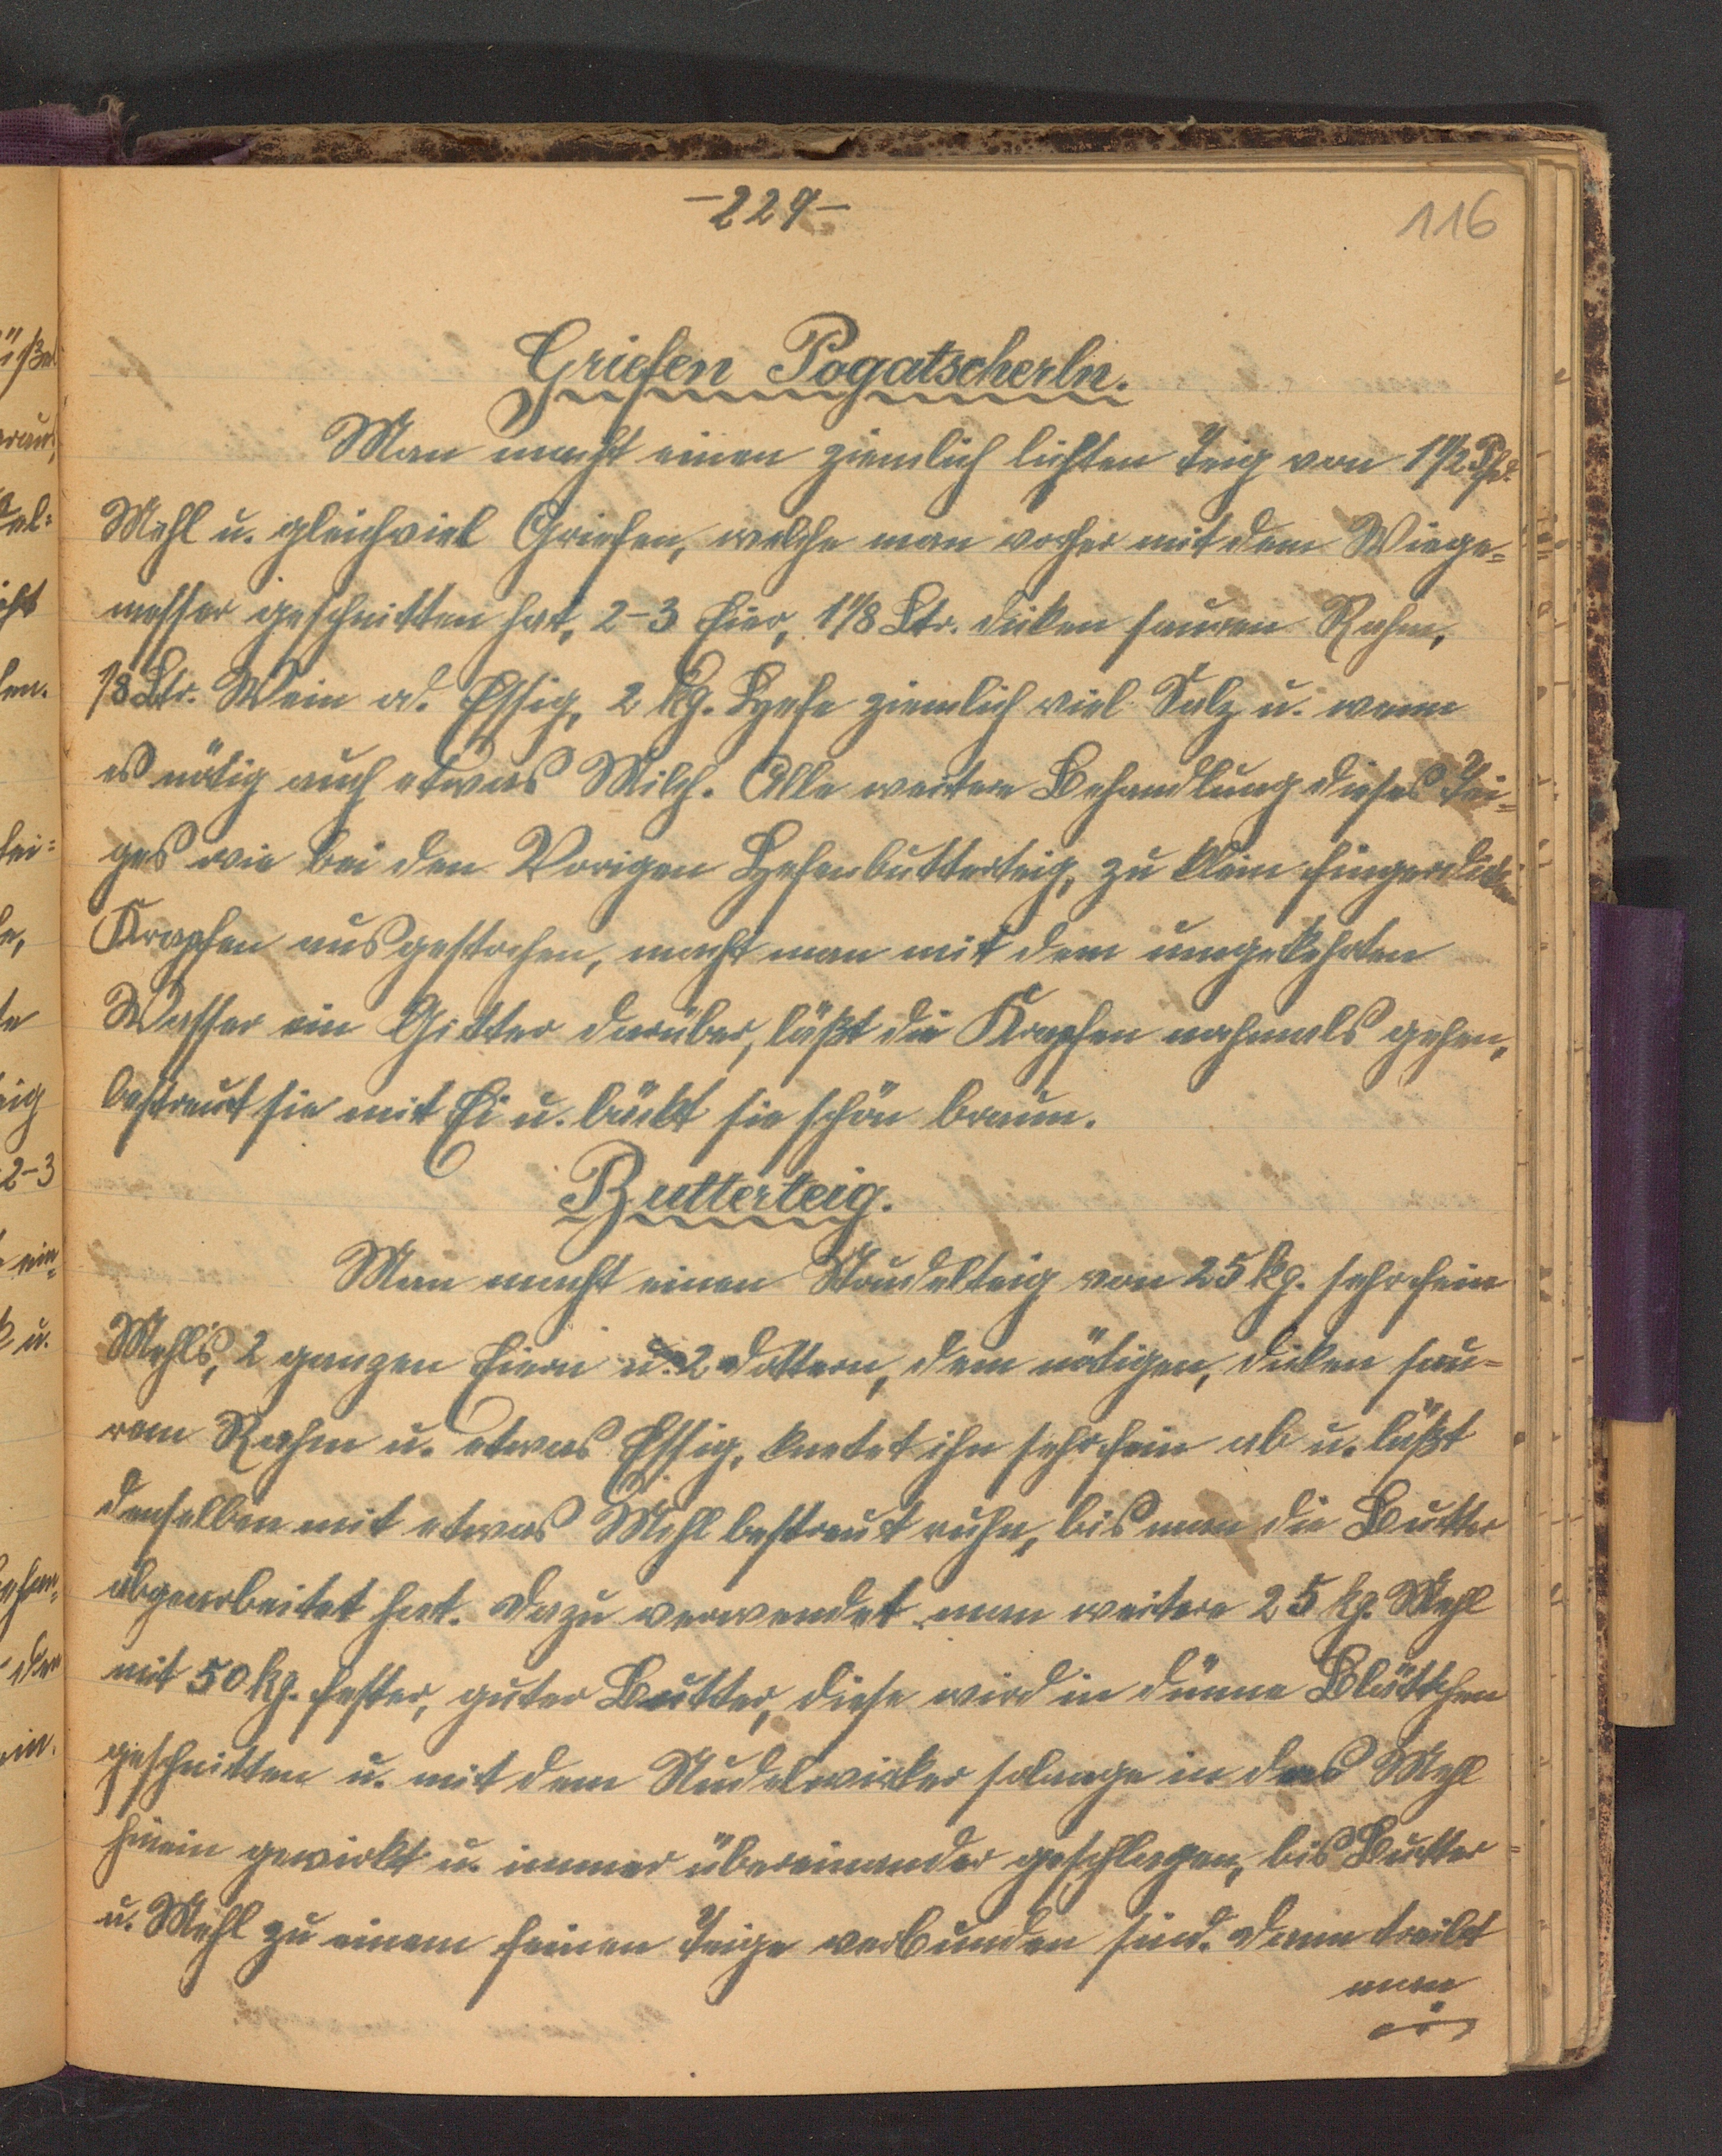 -229-
116
Griefen Pogatscherln.
Man macht einen ziemlich lichten Teig von 1 1/2 Pfd.
Mehl u. gleichviel Griefen, welche man vorher mit dem Wiege=
messer geschnitten hat, 2-3 Eier, 1 1/8 Ltr. dicken sauren Rahm,
1/8 Ltr. Wein od. Essig, 2 kg. Hefe ziemlich viel Salz u. wenn
es nötig auch etwas Milch. Alle weitere Behandlung dieses Tei=
ges wie bei den Vorigen Hefenbutterteig, zu klein fingerdicken
Krapfen ausgestochen, macht man mit dem umgekehrten
Messer ein Gitter darüber, läßt die Krapfen nochmals gehen,
bestreut sie mit Ei u. bäckt sie schön braun.
Butterteig.
Man macht einen Strudelteig von 25 kg. sehr fein
Mehl's, 2 ganzen Eiern u. 2 Dottern, dem nötigen, dicken sau=
rem Rahm u. etwas Essig, knetet ihn sehr fein ab u. läßt
denselben mit etwas Mehl bestreut ruhn, bis man die Butter
abgearbeitet hat. Dazu verwendet man weitere 25 kg. Mehl
mit 50 kg. fester, guter Butter, diese wird in dünne Blättchen
geschnitten u. mit dem Nudelwirker solange in das Mehl
hinein gewirkt u. immer übereinander geschlagen, bis Butter
u. Mehl zu einem feinen Teige verbunden sind. Dann treibt
man